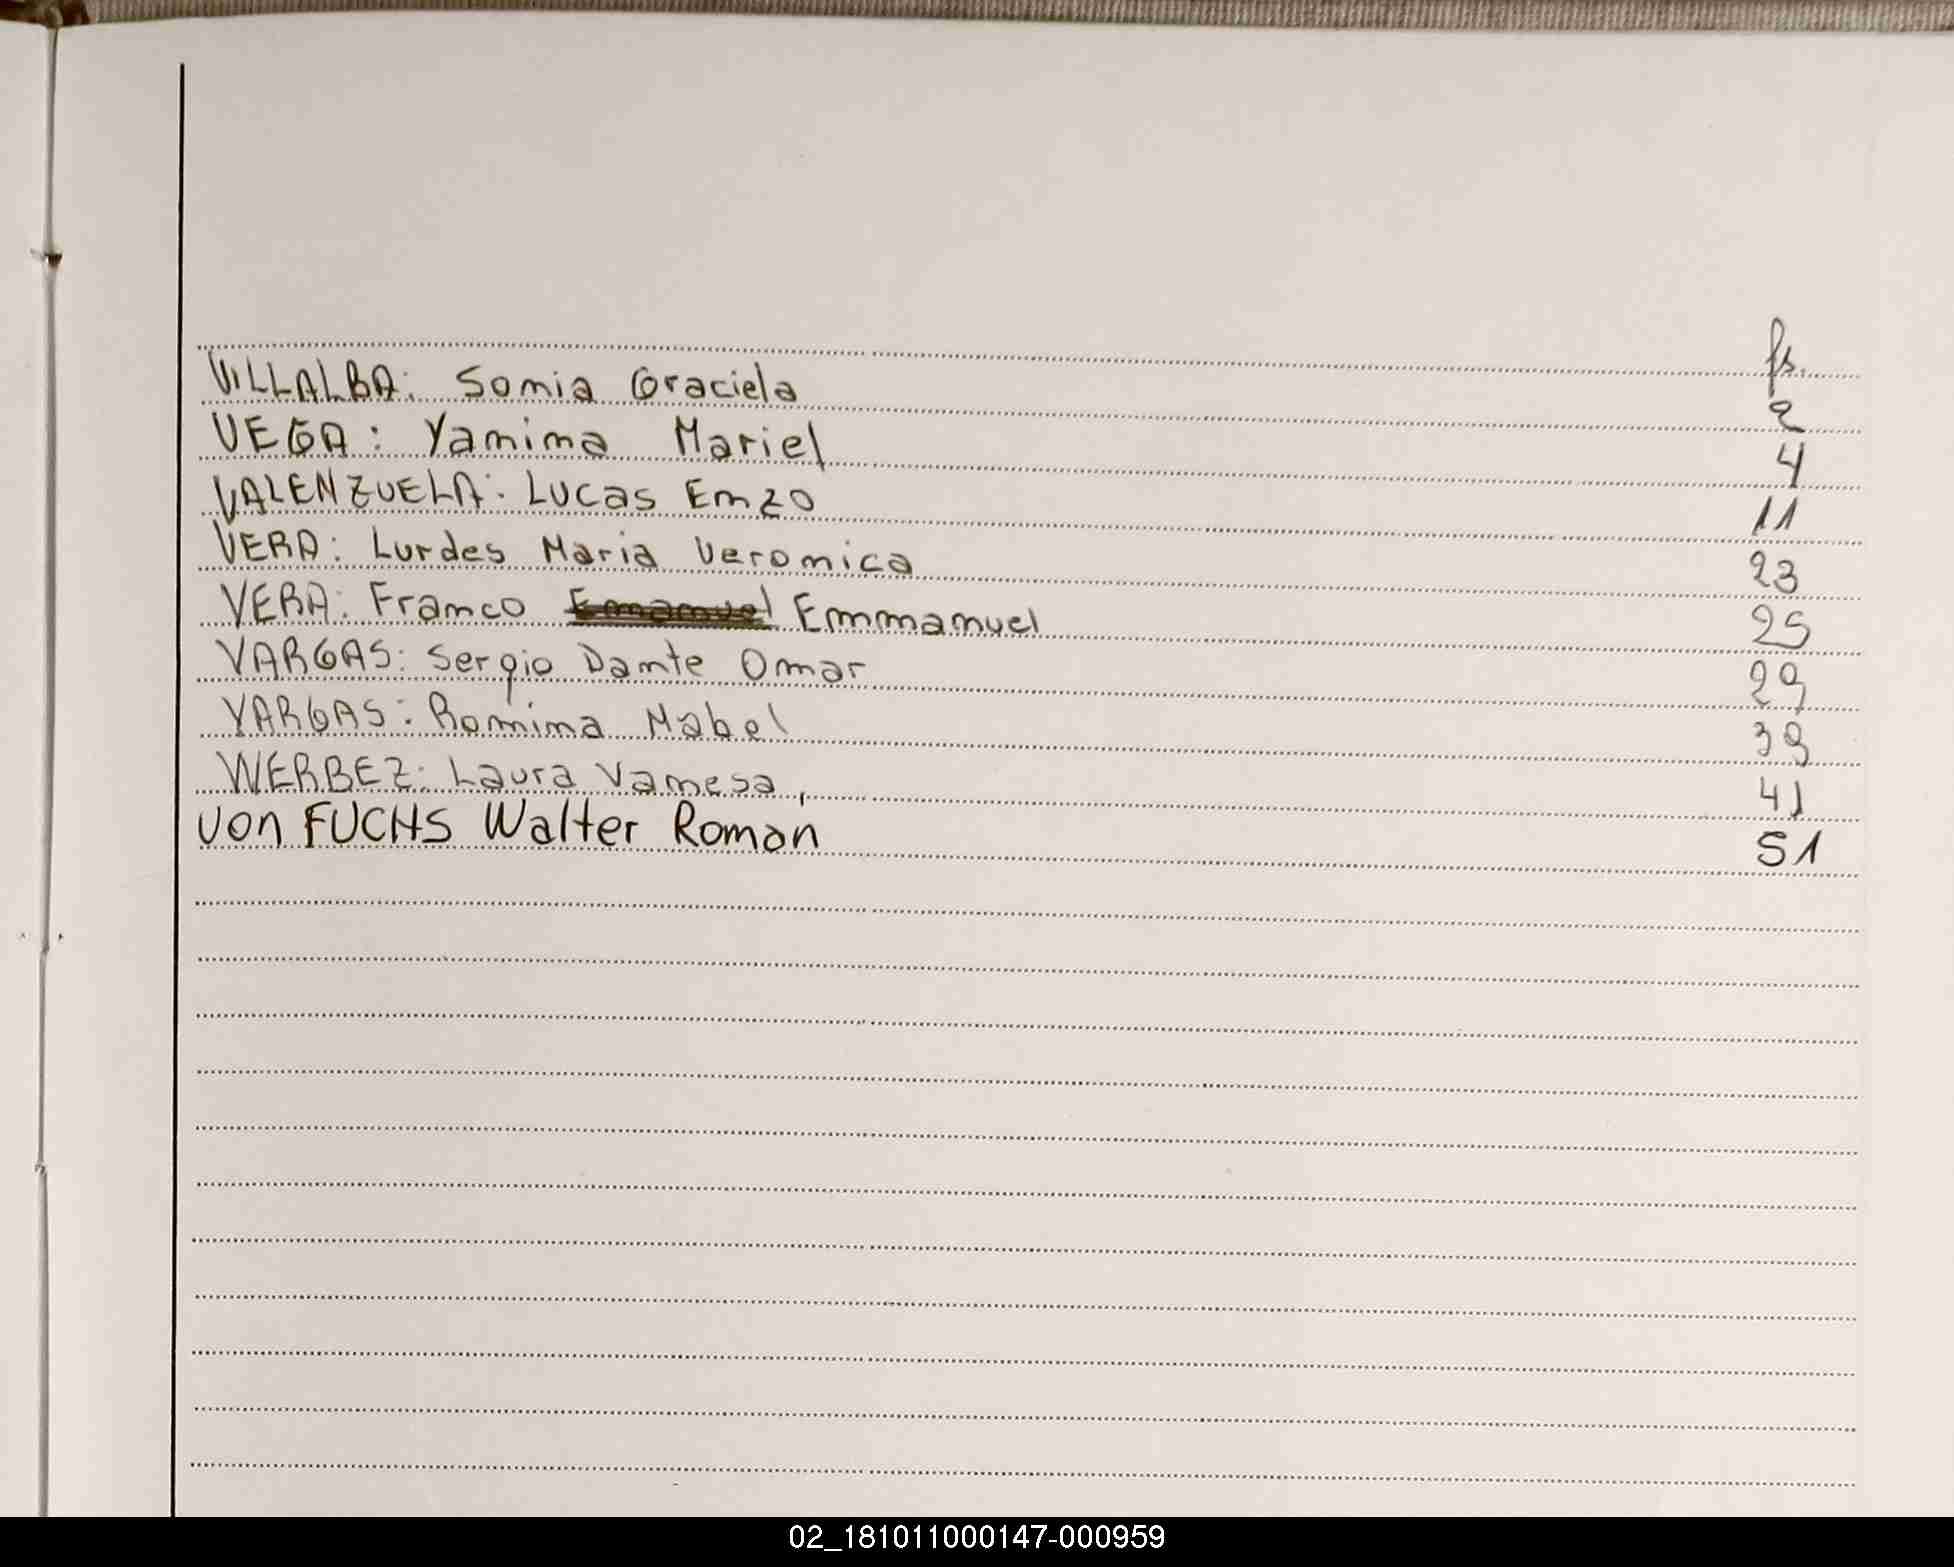 fs.
VILLALBA: Sonia Graciela 2
VEGA: Yanina Mariel 4
VALENZUELA: Lucas Enzo 11
VERA: Lurdes Maria Veronica 23
VERA: Franco Emanuel Emmanuel 25
VARGAS: Sergio Dante Omar 29
VARGAS: Romina Mabel 39
WERBEZ: Laura Vanesa, 41
von FUCHS Walter Roman 51
02_181011000147-000959